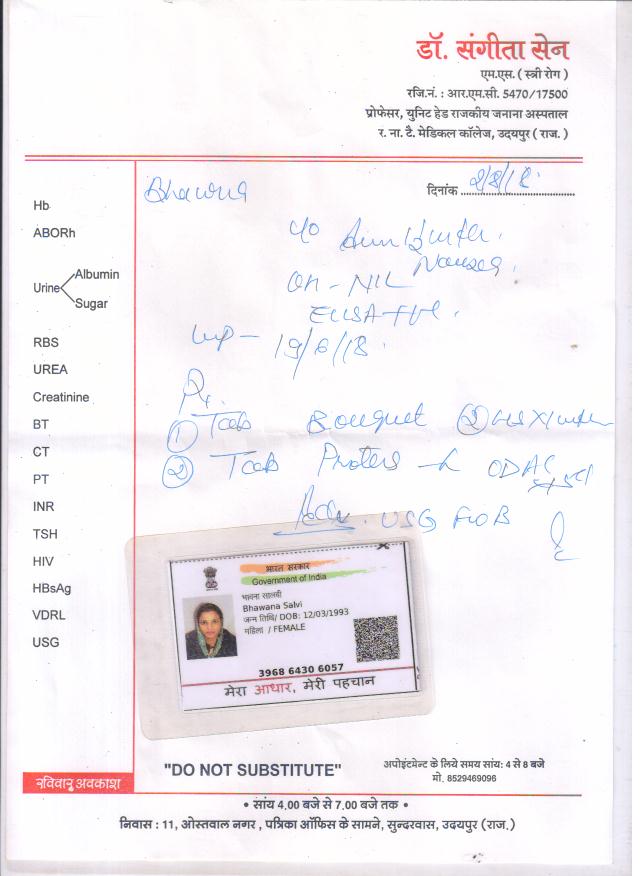 डॉ. संगीता सेन
एम.एस. ( स्त्री रोग )
रजि.नं. : आर.एम.सी. 5470/17500
प्रोफेसर, यूनिट हेड राजकीय जनाना अस्पताल
र. ना. टै. मेडिकल कॉलेज, उदयपुर ( राज. )
दिनांक
Bhawna
Hb
ABORh
Urine
Albumin
Sugar
RBS
UREA
Creatinine
BT
CT
PT
INR
TSH
HIV
HBsAg
VDRL
USG
c/o
Nausea.
OH - NIL
LMP - 19/6/18.
Rx
① Tab Bouquet
② Tab
Adv. USG
भारत सरकार
Government of India
भावना सालवी
Bhawana Salvi
जन्म तिथि/ DOB: 12/03/1993
महिला / FEMALE
3968 6430 6057
मेरा आधार, मेरी पहचान
रविवार अवकाश
"DO NOT SUBSTITUTE"
अपोइंटमेन्ट के लिये समय सांय: 4 से 8 बजे
मो. 8529469096
• सांय 4.00 बजे से 7.00 बजे तक •
निवास : 11, ओस्तवाल नगर , पत्रिका ऑफिस के सामने, सुन्दरवास, उदयपुर (राज.)